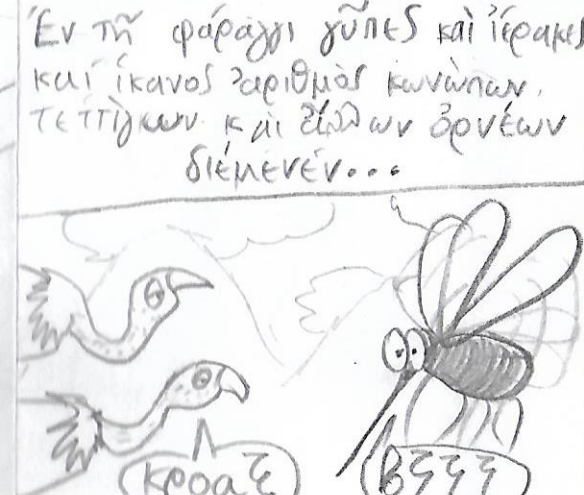 Ἐν τῇ φάραγγι γῦπες καὶ ἱέρακες
καὶ ἱκανὸς ἀριθμὸς κωνώπων,
τεττίγκων καὶ ἄλλων ὀρνέων
διέμενέν...
κροαξ
βζζζ